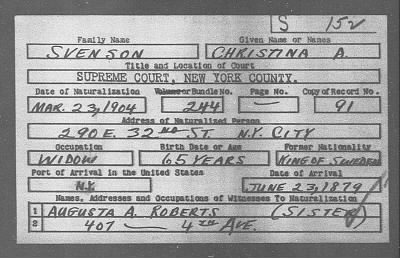 S 152
Family Name Given Name or Names
SVENSON CHRISTINA A.
Title and Location of Court
SUPREME COURT, NEW YORK COUNTY.
Date of Naturalization Volume or Bundle No. Page No. Copy of Record No.
MAR. 23, 1904 244 — 91
Address of Naturalized Person
290 E. 32ND ST. N.Y. CITY
Occupation Birth Date or Age Former Nationality
WIDOW 65 YEARS KING OF SWEDEN
Port of Arrival in the United States Date of Arrival
N.Y. JUNE 23, 1879
Names, Addresses and Occupations of Witnesses To Naturalization
1 AUGUSTA A. ROBERTS (SISTER)
2 407 — 4TH AVE.